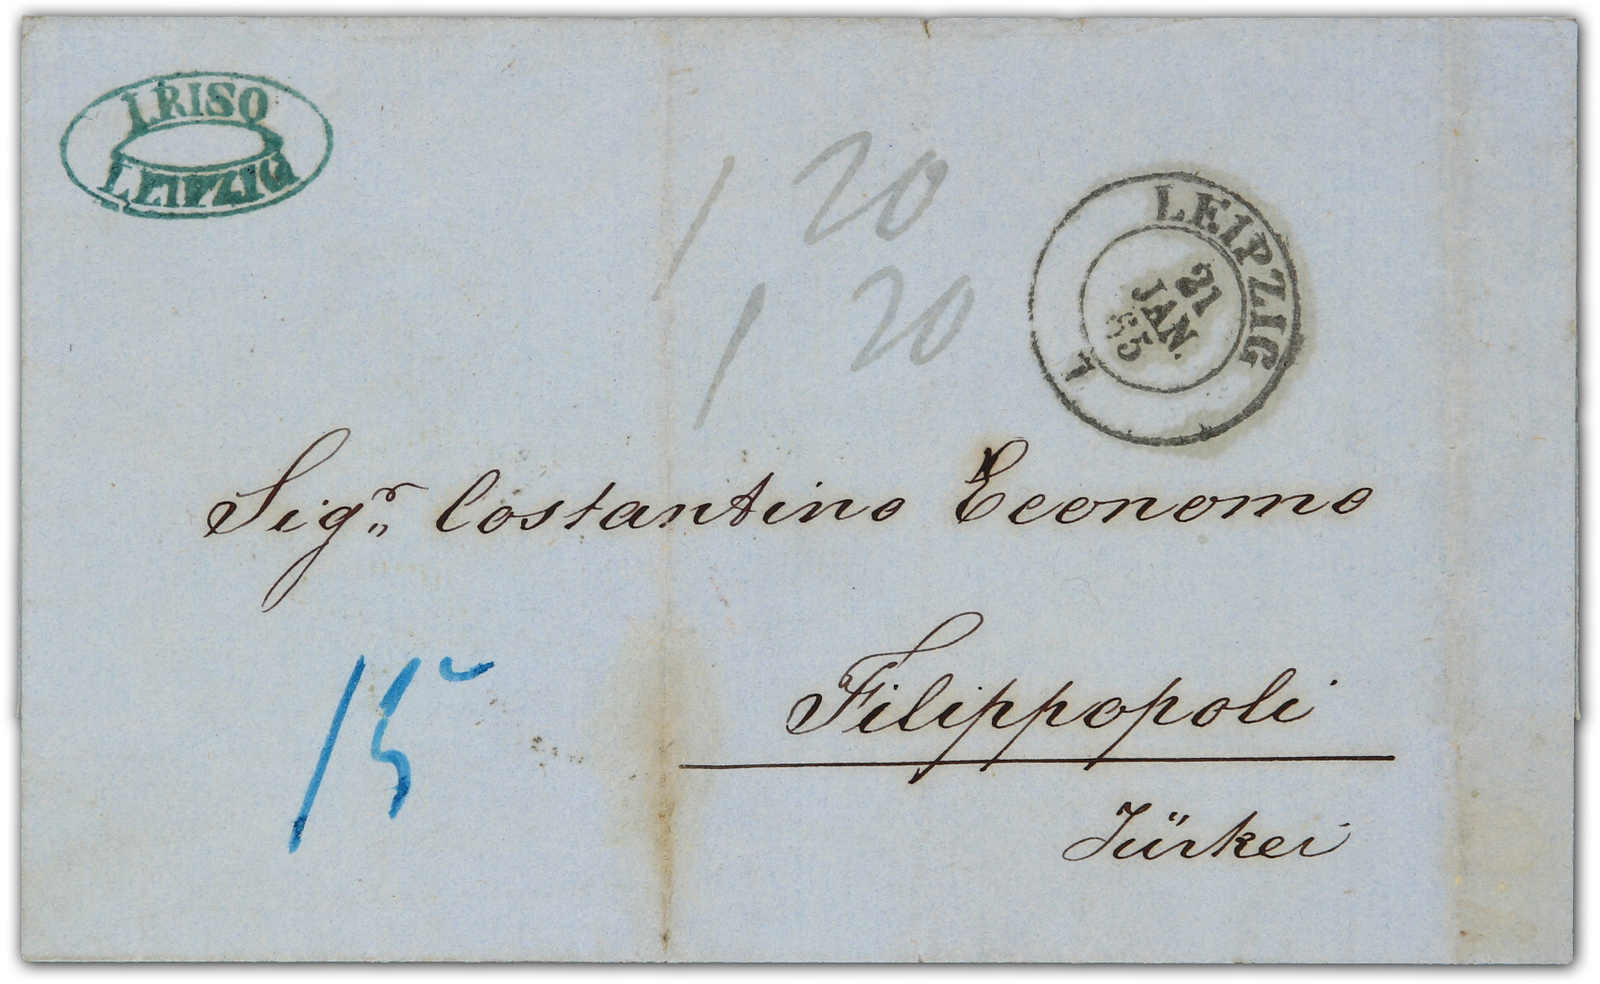 I. RISO
LEIPZIG
1 20
1 20
LEIPZIG
21
JAN.
65
1
Sigr. Costantino Economo
15
Filippopoli
Türkei